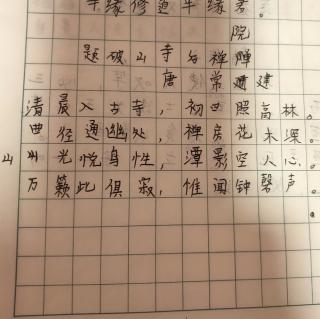 半缘修道半缘君。
院
题破山寺后禅
唐 常建
清晨入古寺，初日照高林。
曲径通幽处，禅房花木深。
山光悦鸟性，潭影空人心。
万籁此俱寂，惟闻钟磬声。